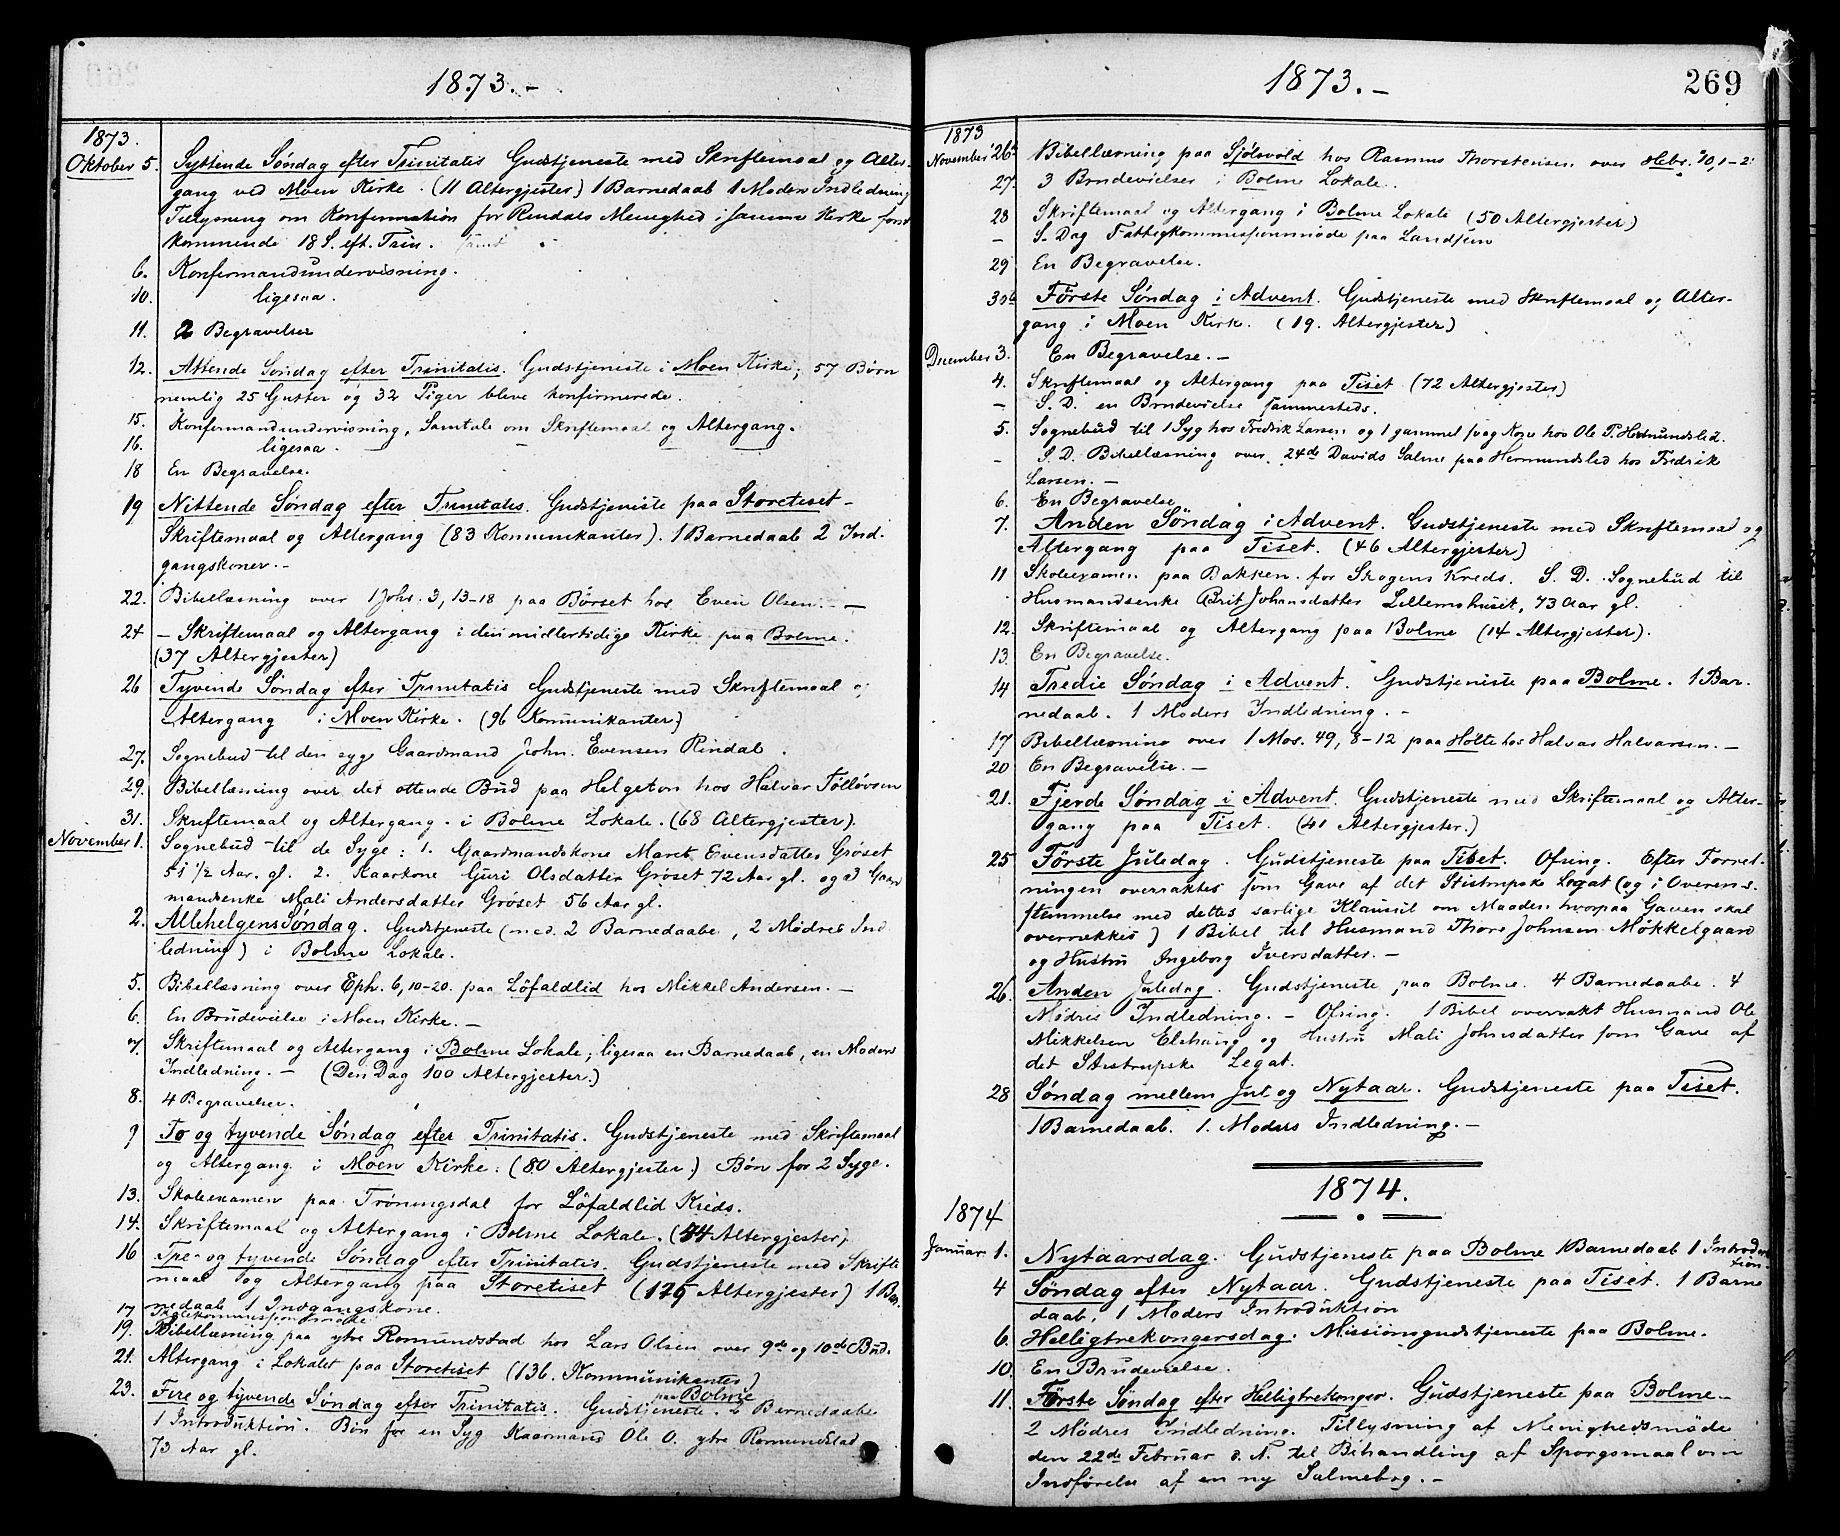 1873.-
1873.
Oktober 5. Syttende Søndag efter Trinitatis Gudstjeneste med Skriftemaal og Alter-
gang ved Moen Kirke. (11 Altergjester) 1 Barnedaab 1 Moders Indledning
Tillysning om Konfirmation for Rindals Menighed i samme Kirke forst-
kommende 18 S. eft. Trin.
6. Konfirmandundervisning.
10. ligesaa.
11. 2 Begravelser
12. Attende Søndag efter Trinitatis. Gudstjeneste i Moen Kirke; 57 Børn
nemlig 25 Gutter og 32 Piger bleve konfirmerede.
15. Konfirmandundervisning, Samtale om Skriftemaal og Altergang.
16. ligesaa - - -
18 En Begravelse.
19 Nittende Søndag efter Trinitatis. Gudstjeneste paa Storetiset-
Skriftemaal og Altergang (83 Komunikanter). 1 Barnedaab 2 Ind-
gangskoner.-
22. Bibellæsning over 1 Johs. 3, 13-18 paa Børset hos Even Olsen.-
24 - Skriftemaal og Altergang i den midlertidige Kirke paa Bolme.
(37 Altergjester)
26 Tyvende Søndag efter Trinitatis Gudstjeneste med Skriftemaal og
Altergang i Moen Kirke. (96 Komunikanter)
27. Sognebud til den syge Gaardmand John Evensen Rindal.
29. Bibellæsning over det ottende Bud paa Helgeton hos Halvar Tølløvsen
31. Skriftemaal og Altergang i Bolme Lokale. (68 Altergjester).
November 1. Sognebud til de Syge: 1. Gaardmandskone Maret Evensdatter Grøset
51 1/2 Aar. gl. 2. Kaarkone Guri Olsdatter Grøset 72 Aar gl. og 3 Gaard
mandsenke Mali Andersdatter Grøset 56 Aar gl.
2. Allehelgens Søndag. Gudstjeneste (med 2 Barnedaabe, 2 Mødres Ind
ledning) i Bolme Lokale.
5. Bibellæsning over Eph. 6, 10-20. paa Løfaldlid hos Mikkel Andersen.-
6. En Brudevielse i Moen Kirke.-
7. Skriftemaal og Altergang i Bolme Lokale; ligesaa en Barnedaab, en Moders
Indledning.- (Den Dag 100 Altergjester.)
8. 4 Begravelser.
9 To og tyvende Søndag efter Trinitatis. Gudstjeneste med Skriftemaal
og Altergang i Moen Kirke. (80 Altergjester.) Bøn for 2 Syge.
13. Skoleexamen paa Trøningsdal for Løfaldlid Kreds.
14. Skriftemaal og Altergang i Bolme Lokale. (54 Altergjester)
16 Tre- og tyvende Søndag efter Trinitatis. Gudstjeneste med Skrifte
maal og Altergang paa Storetiset (125 Altergjester) 1 Bar.
nedaab 1 Indgangskone.
17. Skolekommissionsmøde.
19. Bibellæsning paa ytre Romundstad hos Lars Olsen over 9de og 10de Bud.
21. Altergang i Lokalet paa Storetiset (136. Kommunikanter)
23. Fire og tyvende Søndag efter Trinitatis. Gudstjeneste paa Bolme. 2 Barnedaabe
1 Introduktion. Bøn for en Syg Kaarmand Ole O. ytre Romundstad
73 Aar gl.
1873.-
269
1873
November 26de Bibellæsning paa Sjølsvold hos Rasmus Thorstensen over Hebr. 10, 1-2
27. 3 Brudevielser i Bolme Lokale.
28 Skriftemaal og Altergang i Bolme Lokale (50 Altergjester)
- S. Dag Fattigkommissionsmøde paa Landsem
29 En Begravelse.
30te Förste Søndag i Advent. Gudstjeneste med Skriftemaal og Alter-
gang i Moen Kirk. (19. Altergjester)
December 3. En Begravelse.-
4. Skriftemaal og Altergang paa Tiset (72 Altergjester)
- S. D. en Brudevielse sammesteds.
5. Sognebud til 1 Syg hos Fredrik Larsen og 1 gammel svag Kone hos Ole P. Hermundslid.
- S. D. Bibellæsning over 24de Davids Salme paa Hermundslid hos Fredrik
Larsen.-
6. En Begravelse
7. Anden Søndag i Advent. Gudstjeneste med Skriftemaal og
Altergang paa Tiset. (46 Altergjester)
11 Skoleexamen paa Bakken for Skogens Kreds. S. D. Sognebud til
Husmandsenke Brit Johansdatter Lillemshuset, 73 Aar gl.
12. Skriftemaal og Altergang paa Bolme (14 Altergjester).
13. En Begravelse.
14 Tredie Søndag i Advent. Gudstjeneste paa Bolme. 1 Bar-
nedaab. 1 Moders Indledning.-
17 Bibellæsning over 1 Mos. 49, 8-12 paa Holte hos Halvar Halvarsen.-
20 En Begravelse.-
21. Fjerde Søndag i Advent. Gudstjeneste med Skriftemaal og Alter-
gang paa Tiset. (41 Altergjester.)
25 Förste Juledag. Gudstjeneste paa Tiset. Ofring. Efter Forret-
ningen overraktes som Gave af det Stistrupske Legat (og i Overens-
stemmelse med dettes særlige Klausul om Maaden hvorpaa Gaven skal
overrækkes) 1 Bibel til Husmand Thore Johnsen Møkkelgaard
og Hustru Ingeborg Iversdatter.-
26. Anden Juledag. Gudstjeneste paa Bolme. 4 Barnedaabe. 4
Mødres Indledning.- Ofring. 1 Bibel overrakt Husmand Ole
Mikkelsen Elshaug og Hustru Mali Johnsdatter som Gave af
det Stistrupske Legat.
28 Søndag mellem Jul og Nytaar. Gudstjeneste paa Tiset.
1 Barnedaab. 1. Moders Indledning.-
1874.
1874
Januar 1. Nytaarsdag. Gudstjeneste paa Bolme 1 Barnedaab 1 Introduk
tion.
4 Søndag efter Nytaar. Gudstjeneste paa Tiset. 1 Barne
daab. 1 Moders Introduktion
6. Helligtrekongersdag. Missionsgudstjeneste paa Bolme.
10. En Brudevielse.
11. Förste Søndag efter Helligtrekonger. Gudstjeneste paa Bolme-
2 Mødres Indledning. Tillysning af Menighedsmøde
den 22de Februar d. A. til Behandling af Spørgsmaal om
Indførelse af en ny Salmebog.-